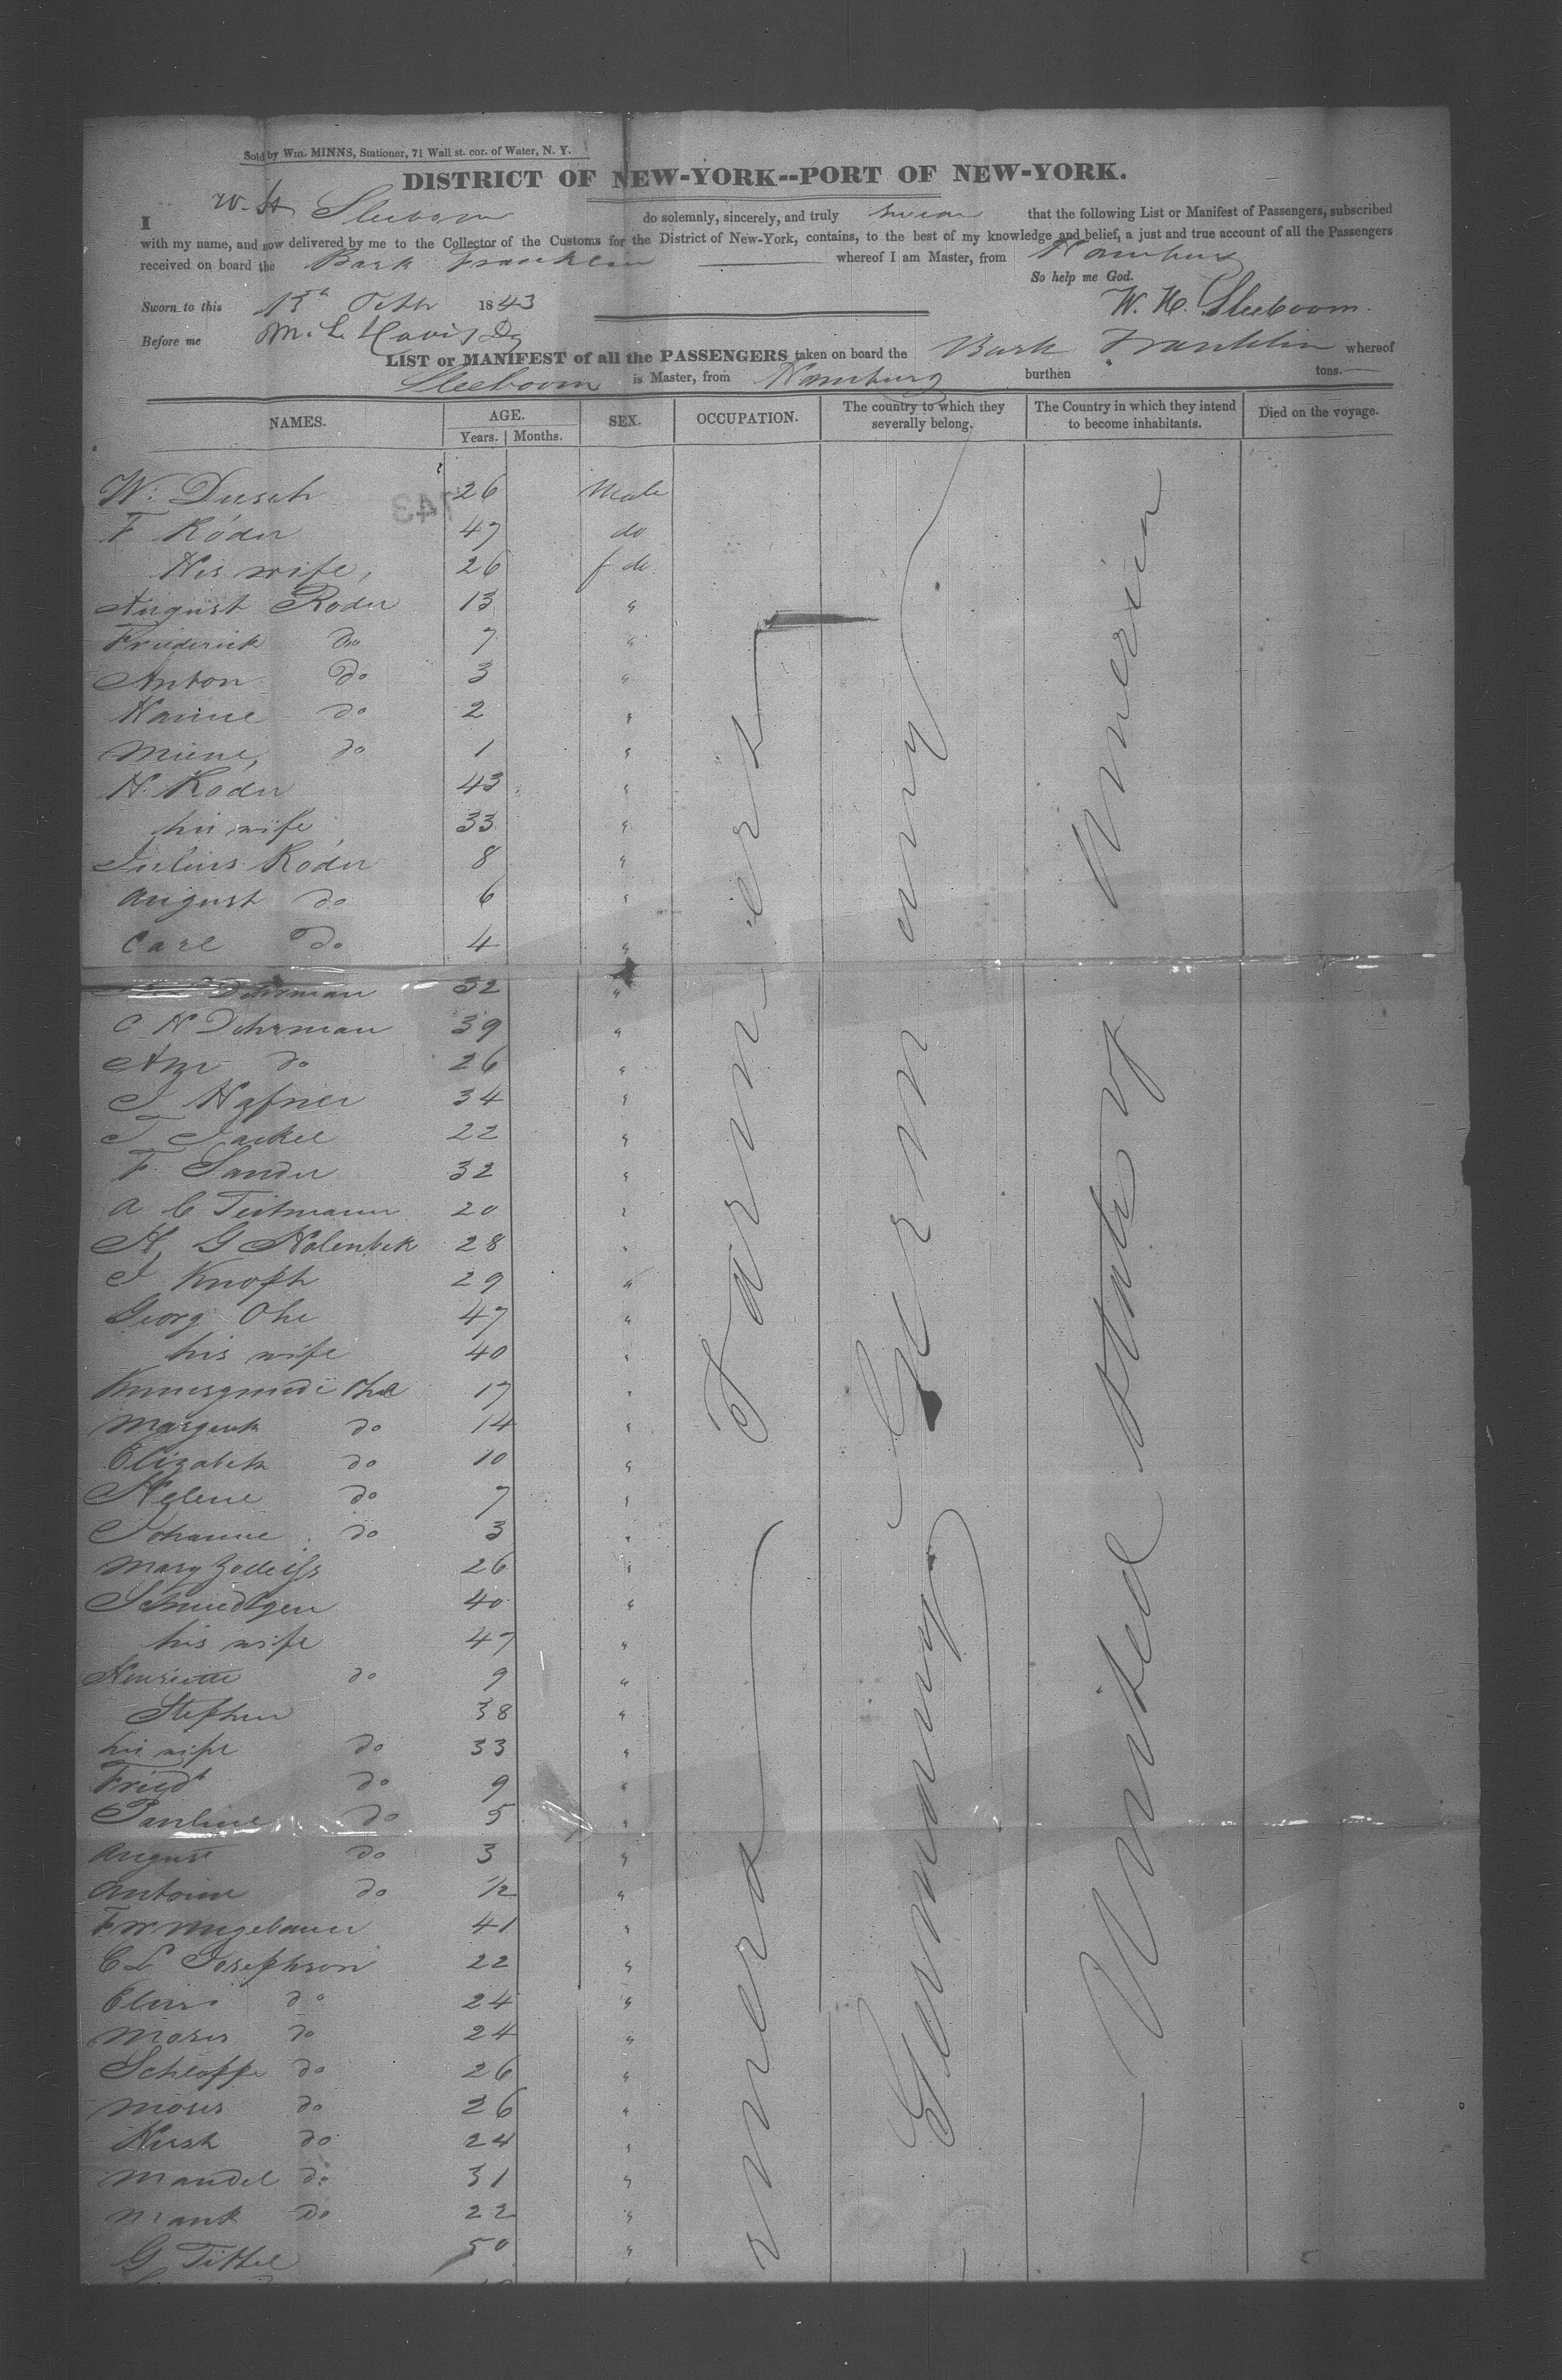 Sold by Wm. MINNS, Stationer, 71 Wall st. cor. of Water, N. Y.
DISTRICT OF NEW-YORK--PORT OF NEW-YORK.
I W. H. Sleeboom do solemnly, sincerely, and truly swear that the following List or Manifest of Passengers, subscribed
with my name, and now delivered by me to the Collector of the Customs for the District of New-York, contains, to the best of my knowledge and belief, a just and true account of all the Passengers
received on board the Bark Franklin whereof I am Master, from Hamburg
So help me God.
Sworn to this 13th Octbr 1843 W. H. Sleeboom.
Before me
LIST or MANIFEST of all the PASSENGERS taken on board the Bark Franklin whereof
Sleeboom is Master, from Hamburg burthen tons.
NAMES. AGE. SEX. OCCUPATION. The country to which they severally belong. The Country in which they intend to become inhabitants. Died on the voyage.
Years. Months.
W. Dusch 26 Male
F Röder 47 do
His wife, 26 f do
August Roder 13 "
Friederick do 7 "
Anton do 3 "
Hanne do 2 "
Miene, do 1 "
H. Roder 43 "
his wife 33 "
Julius Röder 8 "
August do 6 "
Carl do 4 "
Dehrman 32 "
C H Dehrman 39 "
do 26 "
J Hafner 34 "
T Jackel 22 "
F. Sander 32 "
A C Teitmann 20 "
H. G Holenbek 28 "
J Knoph 29 "
Georg Ohe 47 "
his wife 40 "
17 "
Margreth do 14 "
Elizabeth do 10 "
Helene do 7 "
Johanne do 3 "
Mary 26 "
Schmidtgen 40 "
his wife 47 "
Henriette do 9 "
Stephen 38 "
his wife do 33 "
Friedr do 9 "
Pauline do 5 "
August do 3 "
Antoine do 1/2 "
F W 41 "
C L Josephson 22 "
do 24 "
Moses do 24 "
Schloppe do 26 "
Moses do 26 "
Hirsh do 24 "
Mandel do 31 "
Mank do 22 "
G Tittel 50 "
Farmers
Germany
Germany
United States of America
743